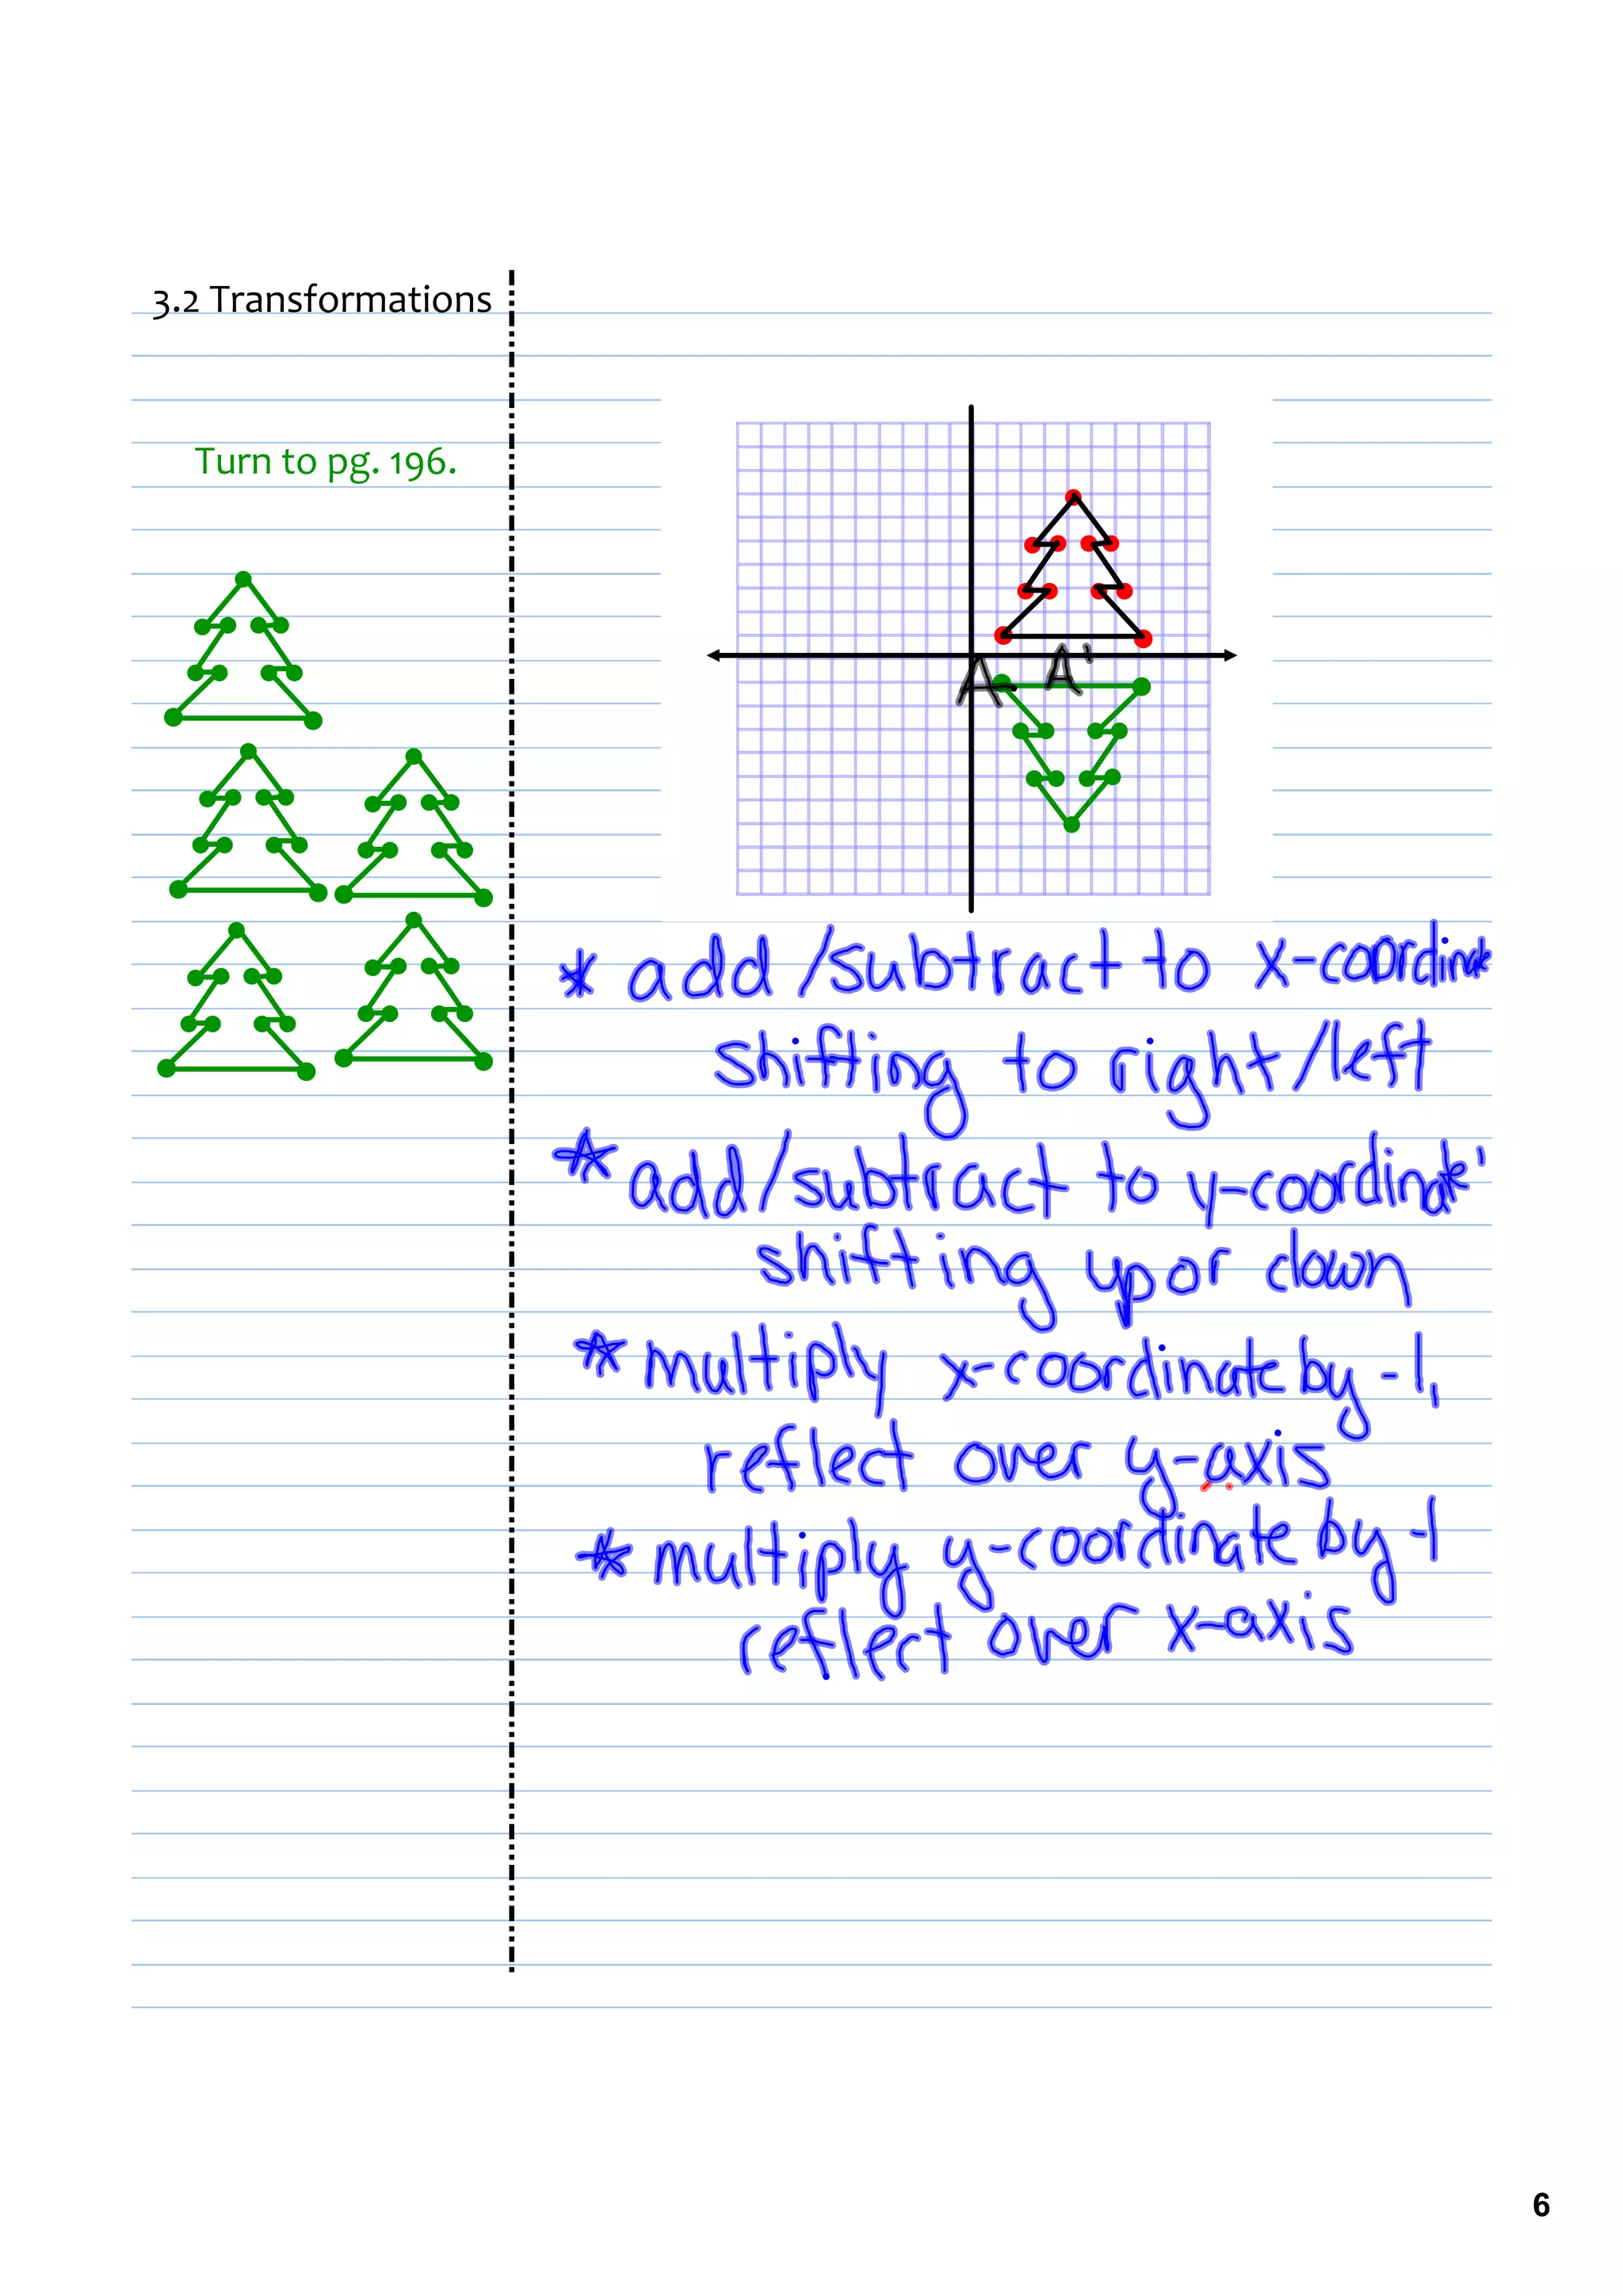 3.2 Transformations
Turn to pg. 196.
A A'
* add/subtract to x-coordinate
shifting to right/left
* add/subtract to y-coordinate
shifting up or down
* multiply x-coordinate by -1,
reflect over y-axis
* multiply y-coordinate by -1
reflect over x-axis
6